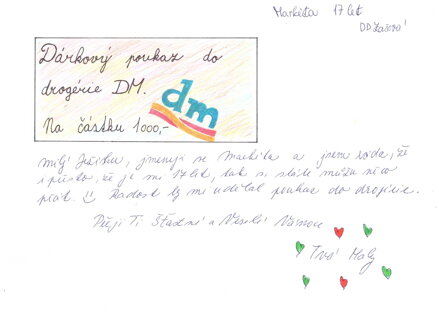 Markéta 17 let
DD
Dárkový poukaz do
drogérie DM.
dm
Na částku 1000,-
Milý Ježíšku, jmenuji se Markéta a jsem ráda, že
i přesto, že je mi 17 let, tak si stále můžu něco
přát. Radost by mi udělal poukaz do drogérie.
Přeji Ti Šťastné a Veselé Vánoce